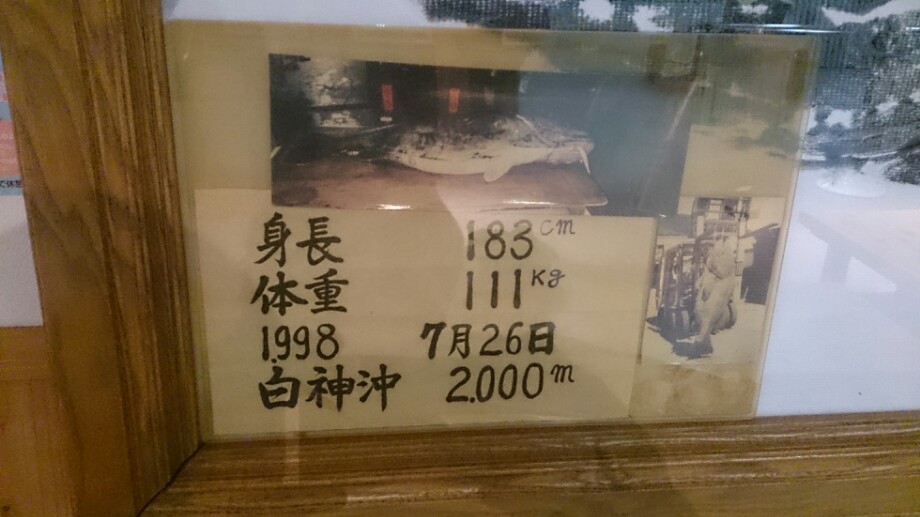 身長 183cm
体重 111Kg
1998 7月26日
白神沖 2.000m